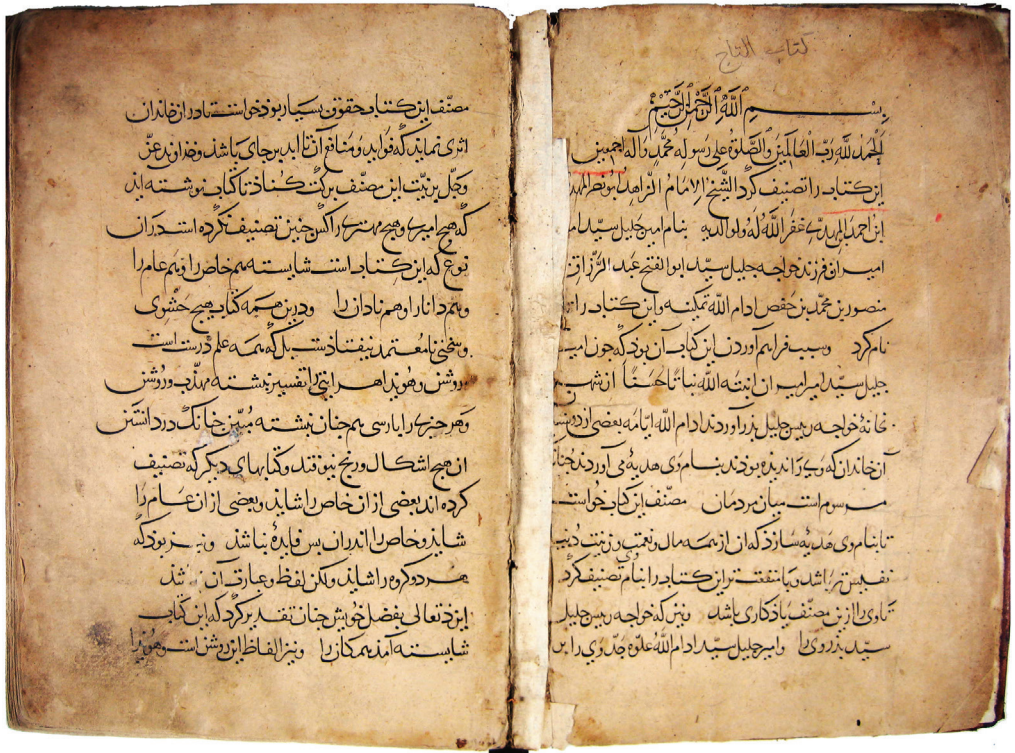 كتاب التاج
بسم الله الرحمن الرحيم
الحمد لله رب العالمين والصلوة على رسوله محمد واله اجمعين
اين كتاب را تصنيف كرد الشيخ الامام الزاهد ابو نصر
ابن احمد غفر الله له ولوالديه بنام امير جليل سيد
اميران فرزند خواجه جليل سيد ابو الفتح عبد الرزاق
منصور بن محمد بن حفص ادام الله تمكينه واين كتاب را
نام كرد وسبب فراهم آوردن اين كتاب آن بود كه چون
جليل سيد امير اميران انبته الله نباتا حسنا از
خانۀ خواجه رييس جليل بدر آوردند ادام الله ايامه بعضى از
آن خاندان كه وى را نديده بودند بنام وى هديه مى آوردند
مرسوم است ميان مردمان مصنف اين كتاب خواست
تا بنام وى هديه سازد كه ان از همه مال ونعمت وزينت
نفيس تر باشد وبا منفعت تر اين كتاب را بنام وى تصنيف كرد
تا وى را ازين مصنف يادكارى باشد ونيز كه خواجه رييس جليل
سيد بذر وى را وامير جليل سيد ادام الله علوه جد وى را بر
مصنف اين كتاب حقوق بسيار بوذ خواست تا در ان خاندان
اثرى نمايد كه فوايد ومنافع آن تا ابد بر جاى باشد وخداوند عز
وجل بر نيت اين مصنف بركت كناد تا كتاب نوشته اند
كه هيچ اميرى وهيچ مهترى را كس چنين تصنيف نكرده است در ان
نوع كه اين كتاب است شايسته هم خاص را وهم عام را
وهم دانا را وهم نادان را ودرين همه كتاب هيچ حشوى
وسخنى نامعتمد نيفتادست بل كه همه علم درست است
روشن وهويدا هر آيتى را تفسير نبشته مهذب وروشن
وهر خبرى را پارسى هم چنان نبشته مبين چنانك در دانستن
ان هيچ اشكال ورنج نيوفتد وكتابهاى ديكر كه تصنيف
كرده اند بعضى از ان خاص را شايد وبعضى از ان عام را
شايد وخاص را اندران بس فايدۀ نباشد ونيز بود كه
هر دو كروه را شايد ولكن لفظ وعبارت آن
ايزد تعالى بفضل خويش چنان تقدير كرد كه اين كتاب
شايسته آمد همكان را ونيز الفاظ اين روشن است وهويدا